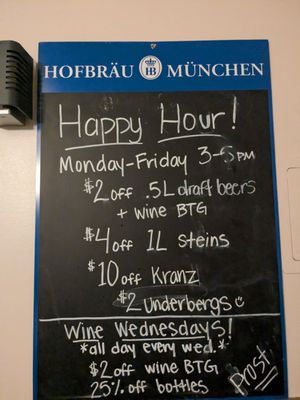 HOFBRÄU HB MÜNCHEN
Happy Hour!
Monday-Friday 3-5PM
$2 off .5L draft beers
+ wine BTG
$4 off 1L steins
$10 off Kranz
$2 Underbergs
Wine Wednesdays!
*all day every wed.*
$2 off wine BTG
25% off bottles
Prost